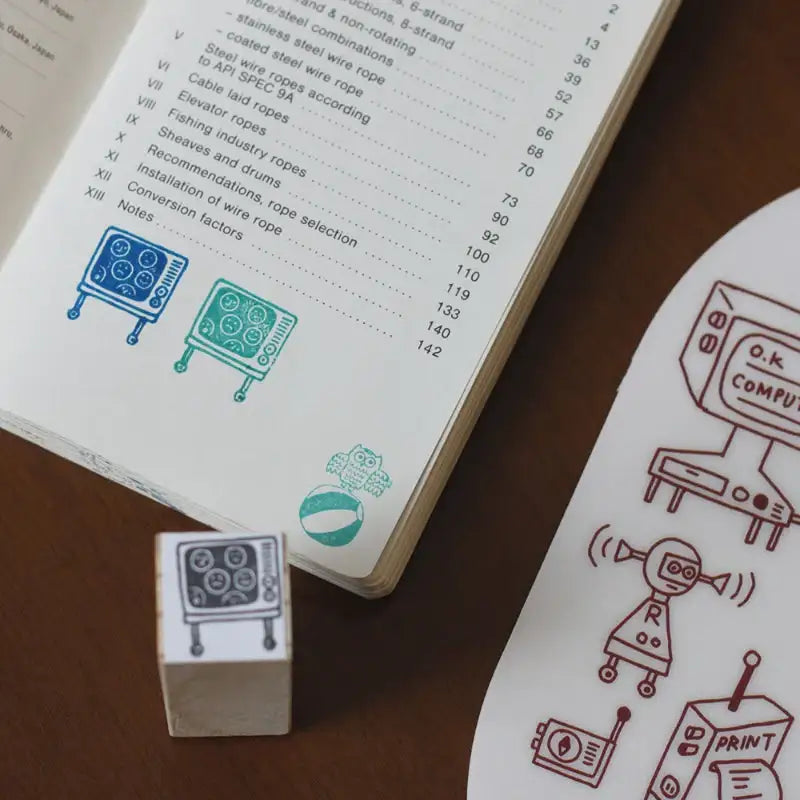 Japan
Osaka, Japan
2
4
13
36
6-strand 39
8-strand 52
& non-rotating 57
fibre/steel combinations 66
- stainless steel wire rope 68
- coated steel wire rope 70
V Steel wire ropes according
to API SPEC 9A 73
VI Cable laid ropes 90
VII Elevator ropes 92
VIII Fishing industry ropes 100
IX Sheaves and drums 110
X Recommendations, rope selection 119
XI Installation of wire rope 133
XII Conversion factors 140
XIII Notes 142
O.K
COMPUT
R
PRINT